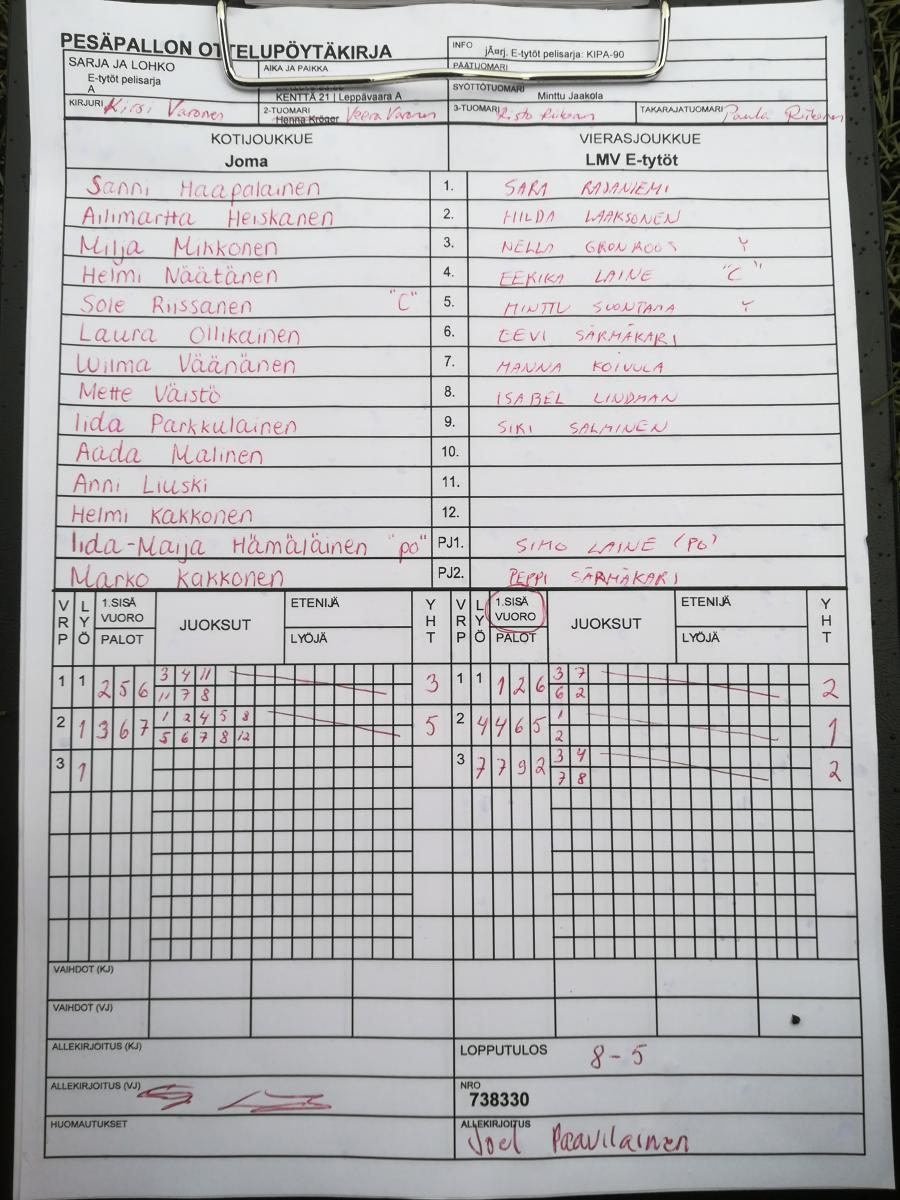 PESÄPALLON OTTELUPÖYTÄKIRJA
INFO jÃ¤rj. E-tytöt pelisarja: KIPA-90
SARJA JA LOHKO
E-tytöt pelisarja
A
AIKA JA PAIKKA
KENTTÄ 21 | Leppävaara A
PÄÄTUOMARI
SYÖTTÖTUOMARI Minttu Jaakola
KIRJURI Kirsi Varonen
2-TUOMARI Henna Kröger Veera Varonen
3-TUOMARI Risto
TAKARAJATUOMARI Paula
KOTIJOUKKUE VIERASJOUKKUE
Joma LMV E-tytöt
Sanni Haapalainen 1. SARA RAJANIEMI
Ailimartta Heiskanen 2. HILDA LAAKSONEN
Milja Mikkonen 3. NELLA GRONROOS Y
Helmi Näätänen 4. EERIKA LAINE "C"
Sole Riissanen "C" 5. MINTTU SUONTAMA Y
Laura Ollikainen 6. EEVI SÄRMÄKARI
Wilma Väänänen 7. MANNA KOIVULA
Mette Väistö 8. ISABEL LINDMAN
Iida Parkkulainen 9. SIKI SALMINEN
Aada Malinen 10.
Anni Liuski 11.
Helmi Kakkonen 12.
Iida-Maija Hämäläinen "po" PJ1. SIMO LAINE (PO)
Marko Kakkonen PJ2. PEPPI SÄRMÄKARI
VRP LYÖ 1.SISÄ VUORO PALOT JUOKSUT ETENIJÄ LYÖJÄ YHT VRP LYÖ 1.SISÄ VUORO PALOT JUOKSUT ETENIJÄ LYÖJÄ YHT
1 1 2 5 6 3 4 11 3 1 1 1 2 6 3 7 2
11 7 8 6 2
2 1 3 6 7 1 2 4 5 8 5 2 4 4 6 5 1 1
5 6 7 8 12 2
3 1 3 7 7 9 2 3 4 2
7 8
VAIHDOT (KJ)
VAIHDOT (VJ)
ALLEKIRJOITUS (KJ) LOPPUTULOS 8-5
ALLEKIRJOITUS (VJ) NRO
738330
HUOMAUTUKSET ALLEKIRJOITUS
Joel Paavilainen